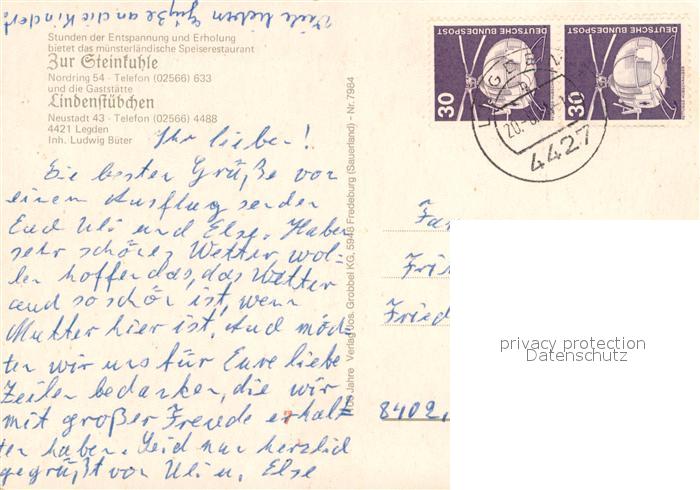 Viele lieben Grüße an die Kinder!
Stunden der Entspannung und Erholung
bietet das münsterländische Speiserestaurant
Zur Steinkuhle
Nordring 54 · Telefon (02566) 633
und die Gaststätte
Lindenstübchen
Neustadt 43 · Telefon (02566) 4488
4421 Legden
Inh. Ludwig Büter
Ihr lieben!
Die besten Grüße von
einem Ausflug senden
Euch Uli und Else. Haben
sehr schönes Wetter, wol-
len hoffen das, das Wetter
auch so schön ist, wenn
Mutter hier ist. Auch möch
ten wir uns für Eure liebe
Zeilen bedanken, die wir
mit großer Freude erhalt
ten haben. Seid nun herzlich
gegrüßt von Uli u. Else
100 Jahre Verlag Jos. Grobbel KG, 5948 Fredeburg (Sauerland) - Nr. 7984
DEUTSCHE BUNDESPOST
30
DEUTSCHE BUNDESPOST
30
LEGDEN
20.
4427
Fa
Fri
Fried
8402,
privacy protection
Datenschutz